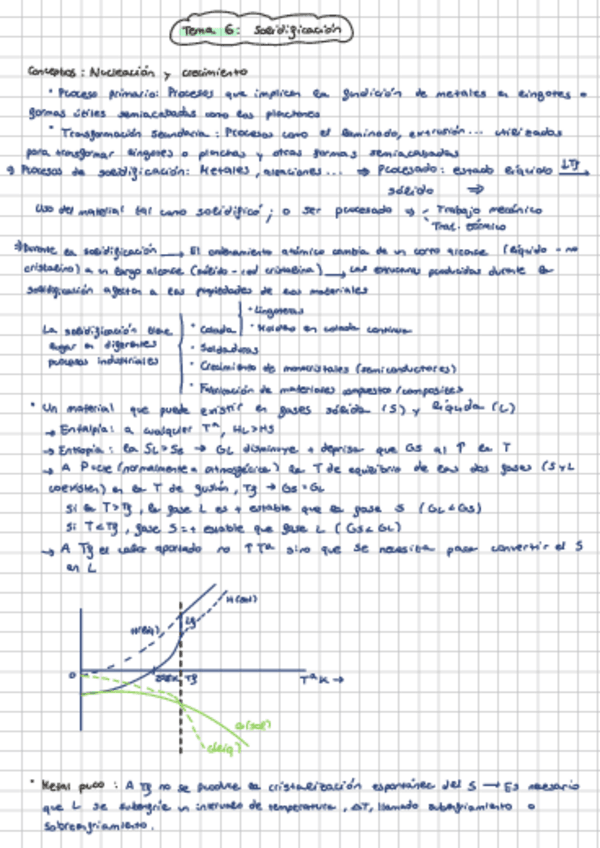 Tema 6: Solidificación
Conceptos: Nucleación y crecimiento
• Proceso primario: Procesos que implican la fundición de metales en lingotes o
formas útiles semiacabadas como las planchones
• Transformación secundaria: Procesos como el laminado, extrusión... utilizadas
para transformar lingotes o planchas y otras formas semiacabadas
Procesos de solidificación: Metales, aleaciones... ⇒ Procesado: estado líquido ↓Tf→
sólido ⇒
Uso del material tal como solidificó; o ser procesado Trabajo mecánico
Trat. térmico
Durante la solidificación → El ordenamiento atómico cambia de un corto alcance (líquido - no
cristalino) a un largo alcance (sólido - red cristalina) → Las estructuras producidas durante la
solidificación afectan a las propiedades de los materiales
La solidificación tiene
lugar en diferentes
procesos industriales
• Colada
• Lingoteras
• Moldeo en colada continua
• Soldaduras
• Crecimiento de monocristales (semiconductores)
• Fabricación de materiales compuestos/composites
• Un material que puede existir en fases sólida (S) y líquida (L)
→ Entalpía: a cualquier Tª, HL>HS
→ Entropía: la SL>Ss → GL disminuye + deprisa que GS al ↑ la T
→ A P=cte (normalmente = atmosférica) la T de equilibrio de las dos fases (S y L
coexisten) es la T de fusión, Tf → Gs=GL
Si la T>Tf, la fase L es + estable que la fase S (GL<GS)
Si T<Tf, fase S = + estable que fase L (GS<GL)
→ A Tf el calor aportado no ↑Tª sino que se necesita para convertir el S
en L
H(sol)
H(líq)
Lf
0
298K
Tf
Tª K →
G(sol)
G(líq)
• Metal puro: A Tf no se produce la cristalización espontánea del S → Es necesario
que L se subenfríe un intervalo de temperatura, ΔT, llamado subenfriamiento o
sobreenfriamiento.